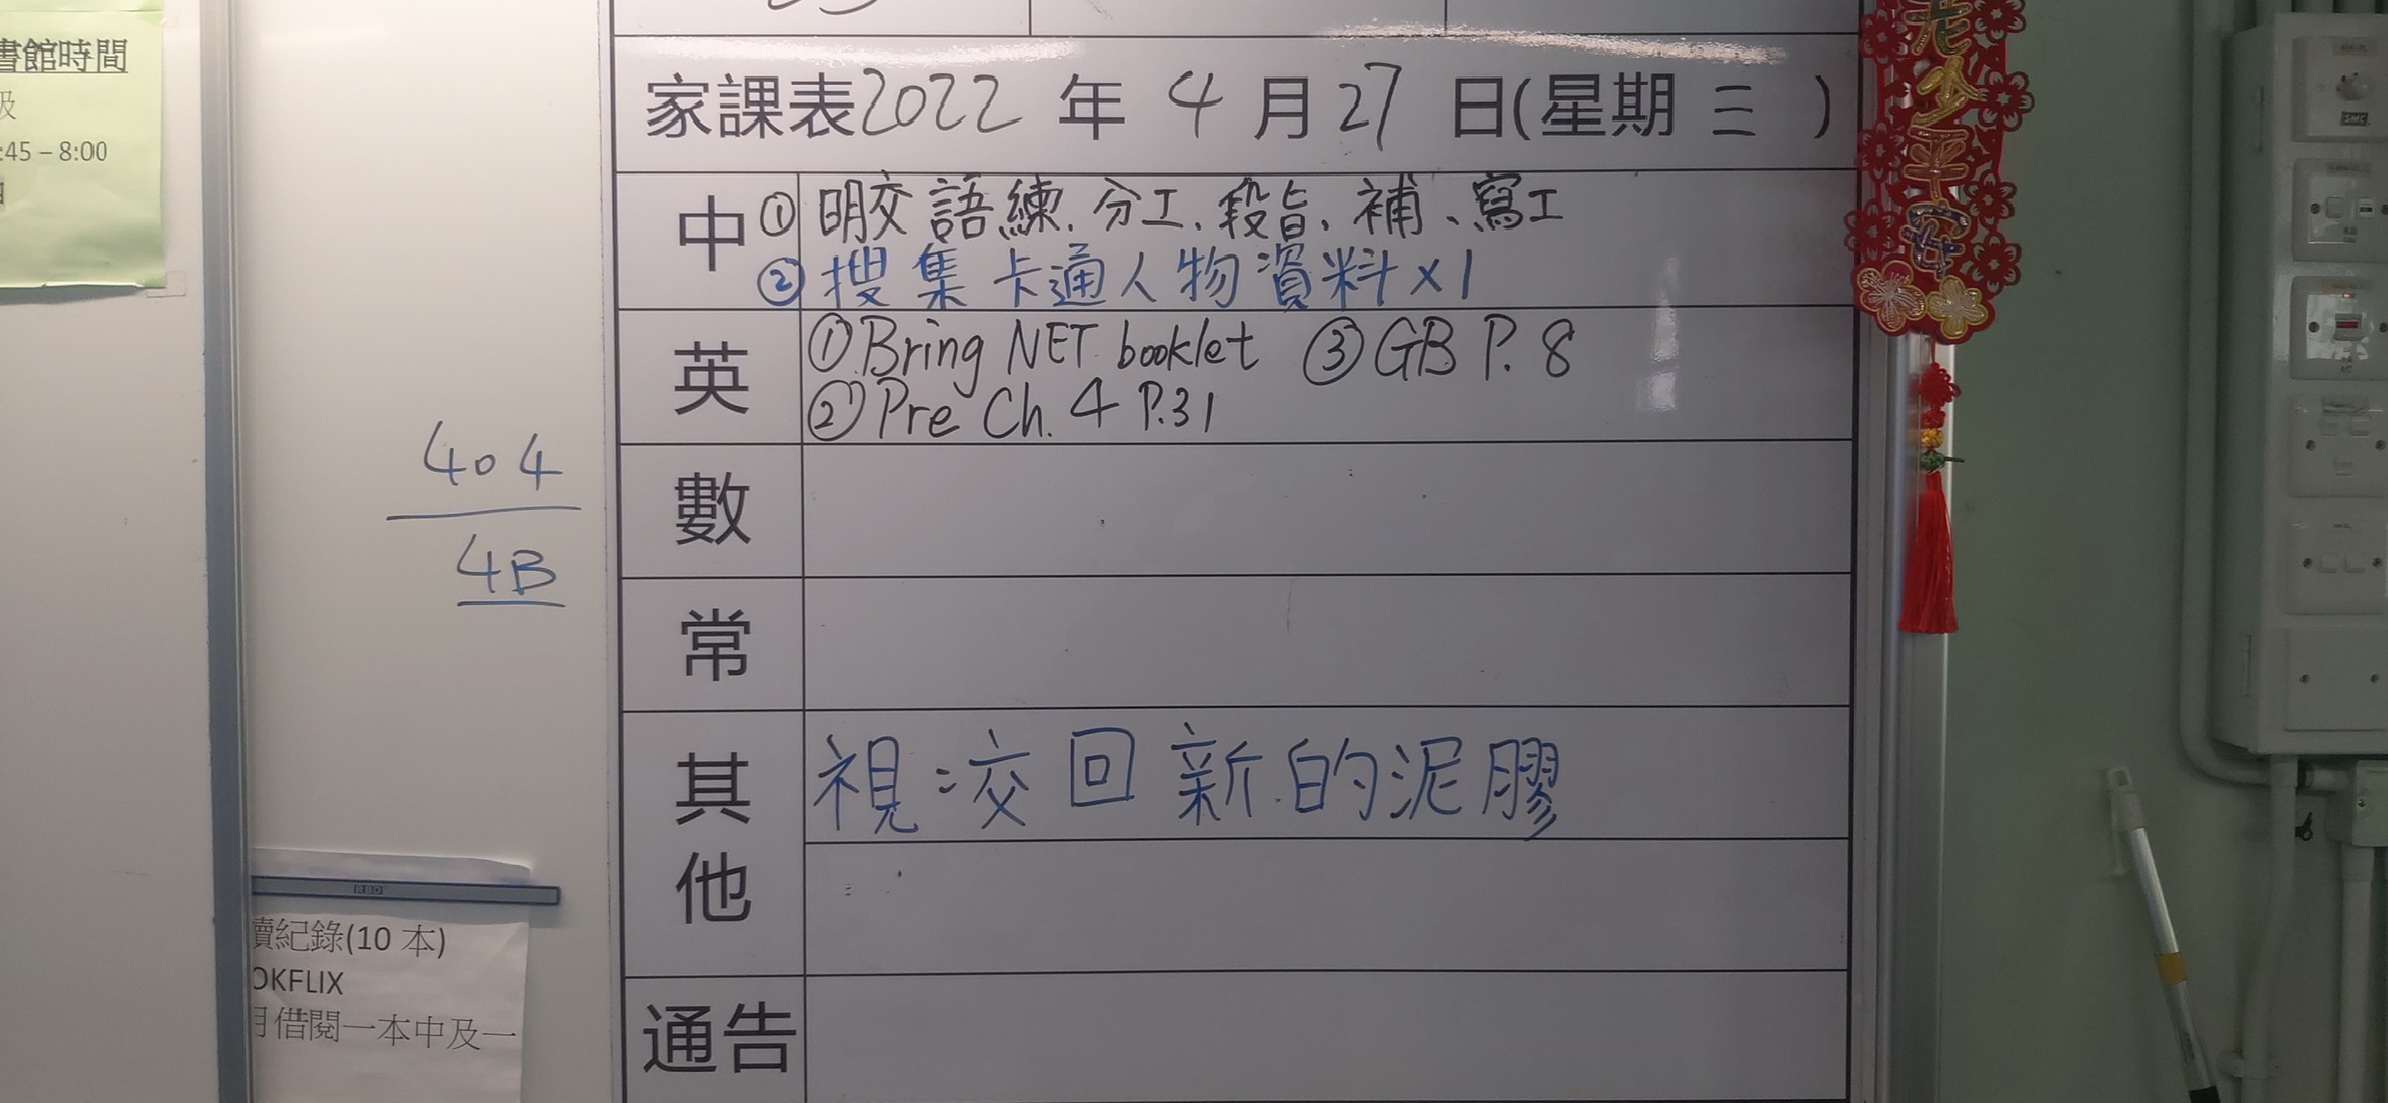 書館時間
:45 – 8:00
家課表2022 年 4 月 27 日(星期 三 )
中
① 明交語練、分工、段旨、補、寫工
② 搜集卡通人物資料×1
英
① Bring NET booklet ③ GB P. 8
② Pre Ch. 4 P.31
數
常
其他
視：交回新的泥膠
通告
404
4B
RBD
讀紀錄(10 本)
OKFLIX
月借閱一本中及一
老少平安